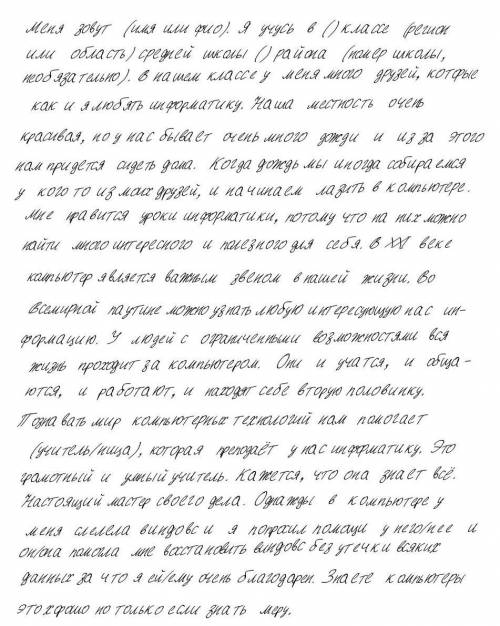 Меня зовут (имя или фио). Я учусь в () классе (регион
или область) средней школы () района (номер школы,
необязательно). В нашем классе у меня много друзей, которые
как и я любять информатику. Наша местность очень
красивая, но у нас бывает очень много дожди и из за этого
нам придется сидеть дома. Когда дождь мы иногда собираемся
у кого то из моих друзей, и начинаем лазить в компьютере.
Мне нравится уроки информатики, потому что на них можно
найти много интересного и полезного для себя. В XXI веке
компьютер является важным звеном в нашей жизни. Во
Всемирной паутине можно узнать любую интересующую нас ин-
формацию. У людей с ограниченными возможностями вся
жизнь проходит за компьютером. Они и учатся, и обща-
ются, и работают, и находят себе вторую половинку.
Познавать мир компьютерных технологий нам помогает
(учитель/ница), которая преподаёт у нас информатику. Это
грамотный и умный учитель. Кажется, что она знает всё.
Настоящий мастер своего дела. Однажды в компьютере у
меня слелела виндовс и я попросил помощи у него/нее и
он/она помогла мне восстановить виндовс без утечки всяких
данных за что я ей/ему очень благодарен. Знаете компьютеры
это хорошо но только если знать меру.